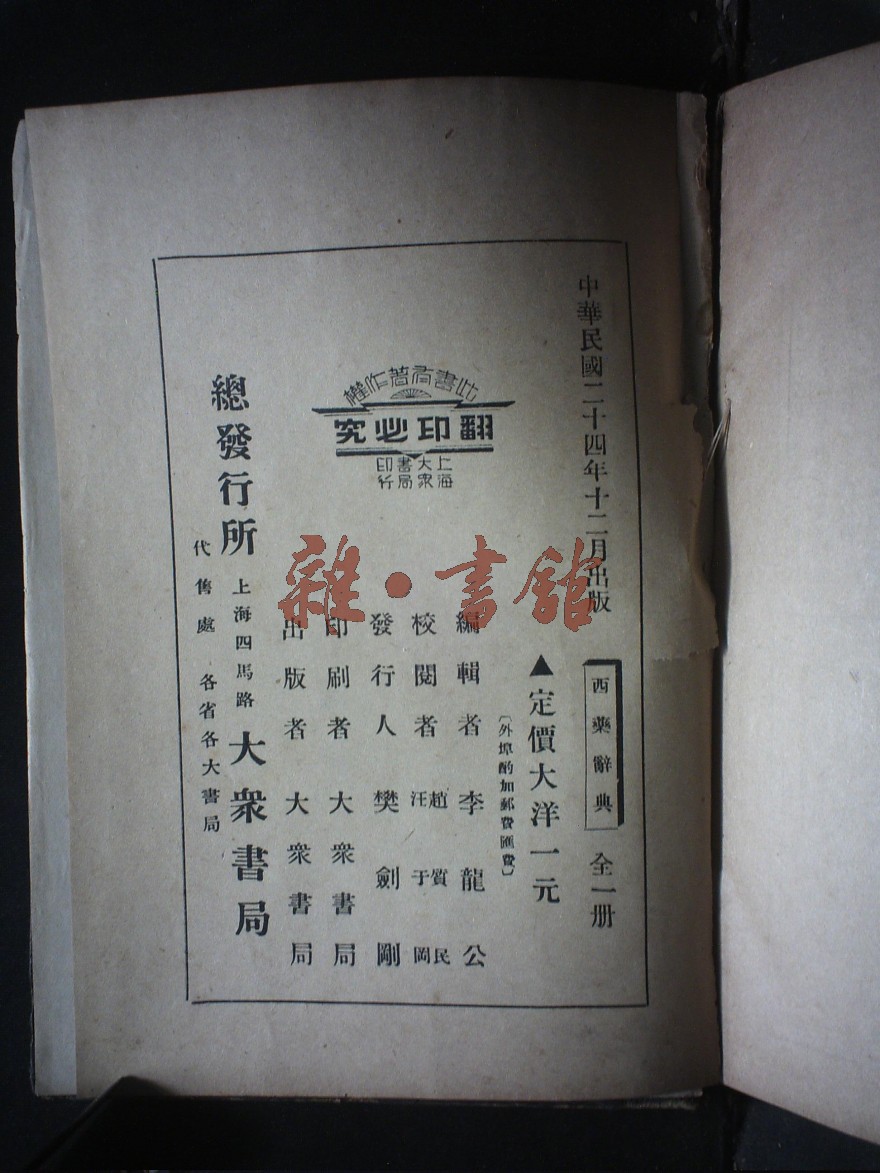 中華民國二十四年十二月出版
西藥辭典
全一册
▲定價大洋一元
〔外埠酌加郵費匯費〕
編輯者 李龍公
校閱者 趙質民
汪于岡
發行人 樊劍剛
印刷者 大衆書局
出版者 大衆書局
此書有著作權
翻印必究
上海大衆書局印行
總發行所 上海四馬路 大衆書局
代售處 各省各大書局
雜·書舘